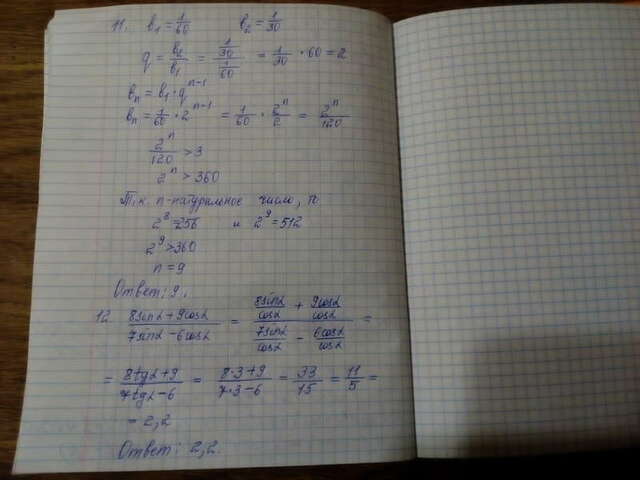 11. b₁ = 1/60 b₂ = 1/30
q = b₂/b₁ = (1/30)/(1/60) = 1/30 · 60 = 2
bₙ = b₁ · qⁿ⁻¹
bₙ = 1/60 · 2ⁿ⁻¹ = 1/60 · 2ⁿ/2 = 2ⁿ/120
2ⁿ/120 > 3
2ⁿ > 360
Т.к. n - натуральное число, то
2⁸ = 256 и 2⁹ = 512
2⁹ > 360
n = 9
Ответ: 9.
12. (8sinα + 9cosα)/(7sinα - 6cosα) = (8sinα/cosα + 9cosα/cosα)/(7sinα/cosα - 6cosα/cosα) =
= (8tgα + 9)/(7tgα - 6) = (8·3+9)/(7·3-6) = 33/15 = 11/5 =
= 2,2
Ответ: 2,2.